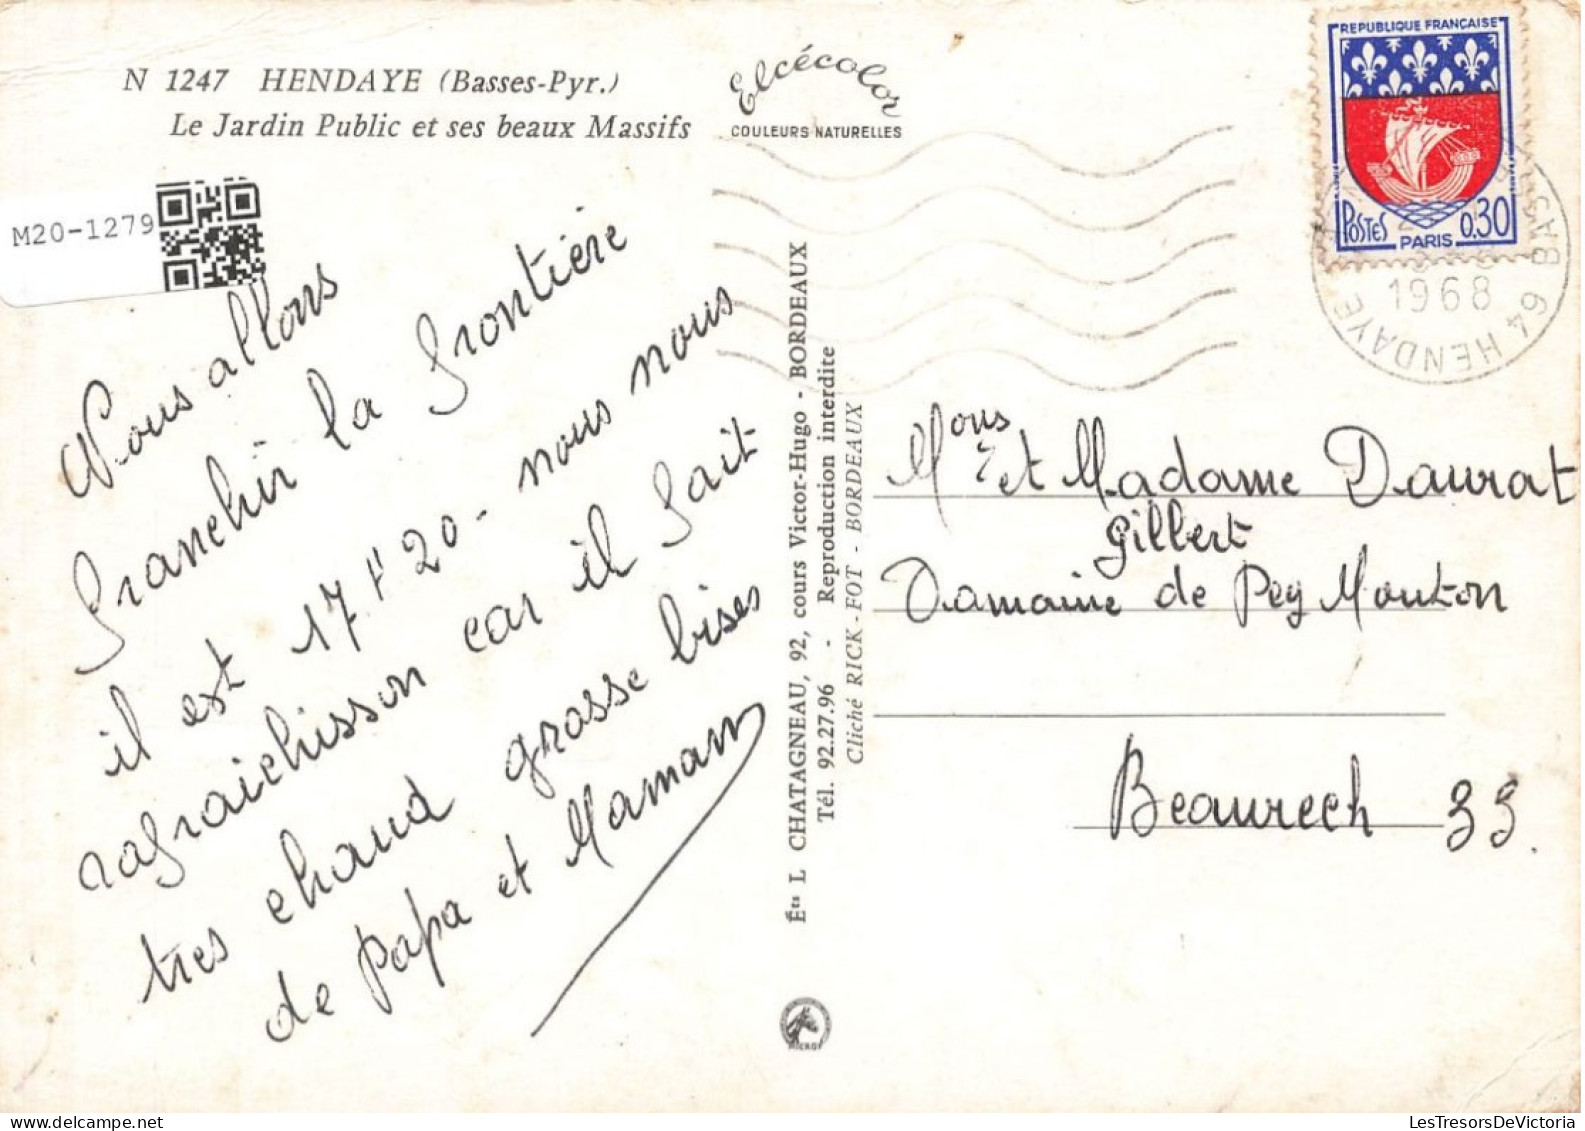 N 1247 HENDAYE (Basses-Pyr.)
Le Jardin Public et ses beaux Massifs
Elcécolor
COULEURS NATURELLES
M20-1279
Nous allons
franchir la frontière
il est 17 H 20 - nous nous
rafraichisson car il fait
tres chaud grosse bises
de Papa et Maman
Éts L CHATAGNEAU, 92, cours Victor-Hugo - BORDEAUX
Tél. 92.27.96 - Reproduction interdite
Cliché RICK-FOT - BORDEAUX
REPUBLIQUE FRANÇAISE
POSTES
PARIS
0,30
1968
64 HENDAYE
Mons
et Madame Daurat
Gilbert
Damaine de Pey Mouton
Beaurech 33.
LesTresorsDeVictoria